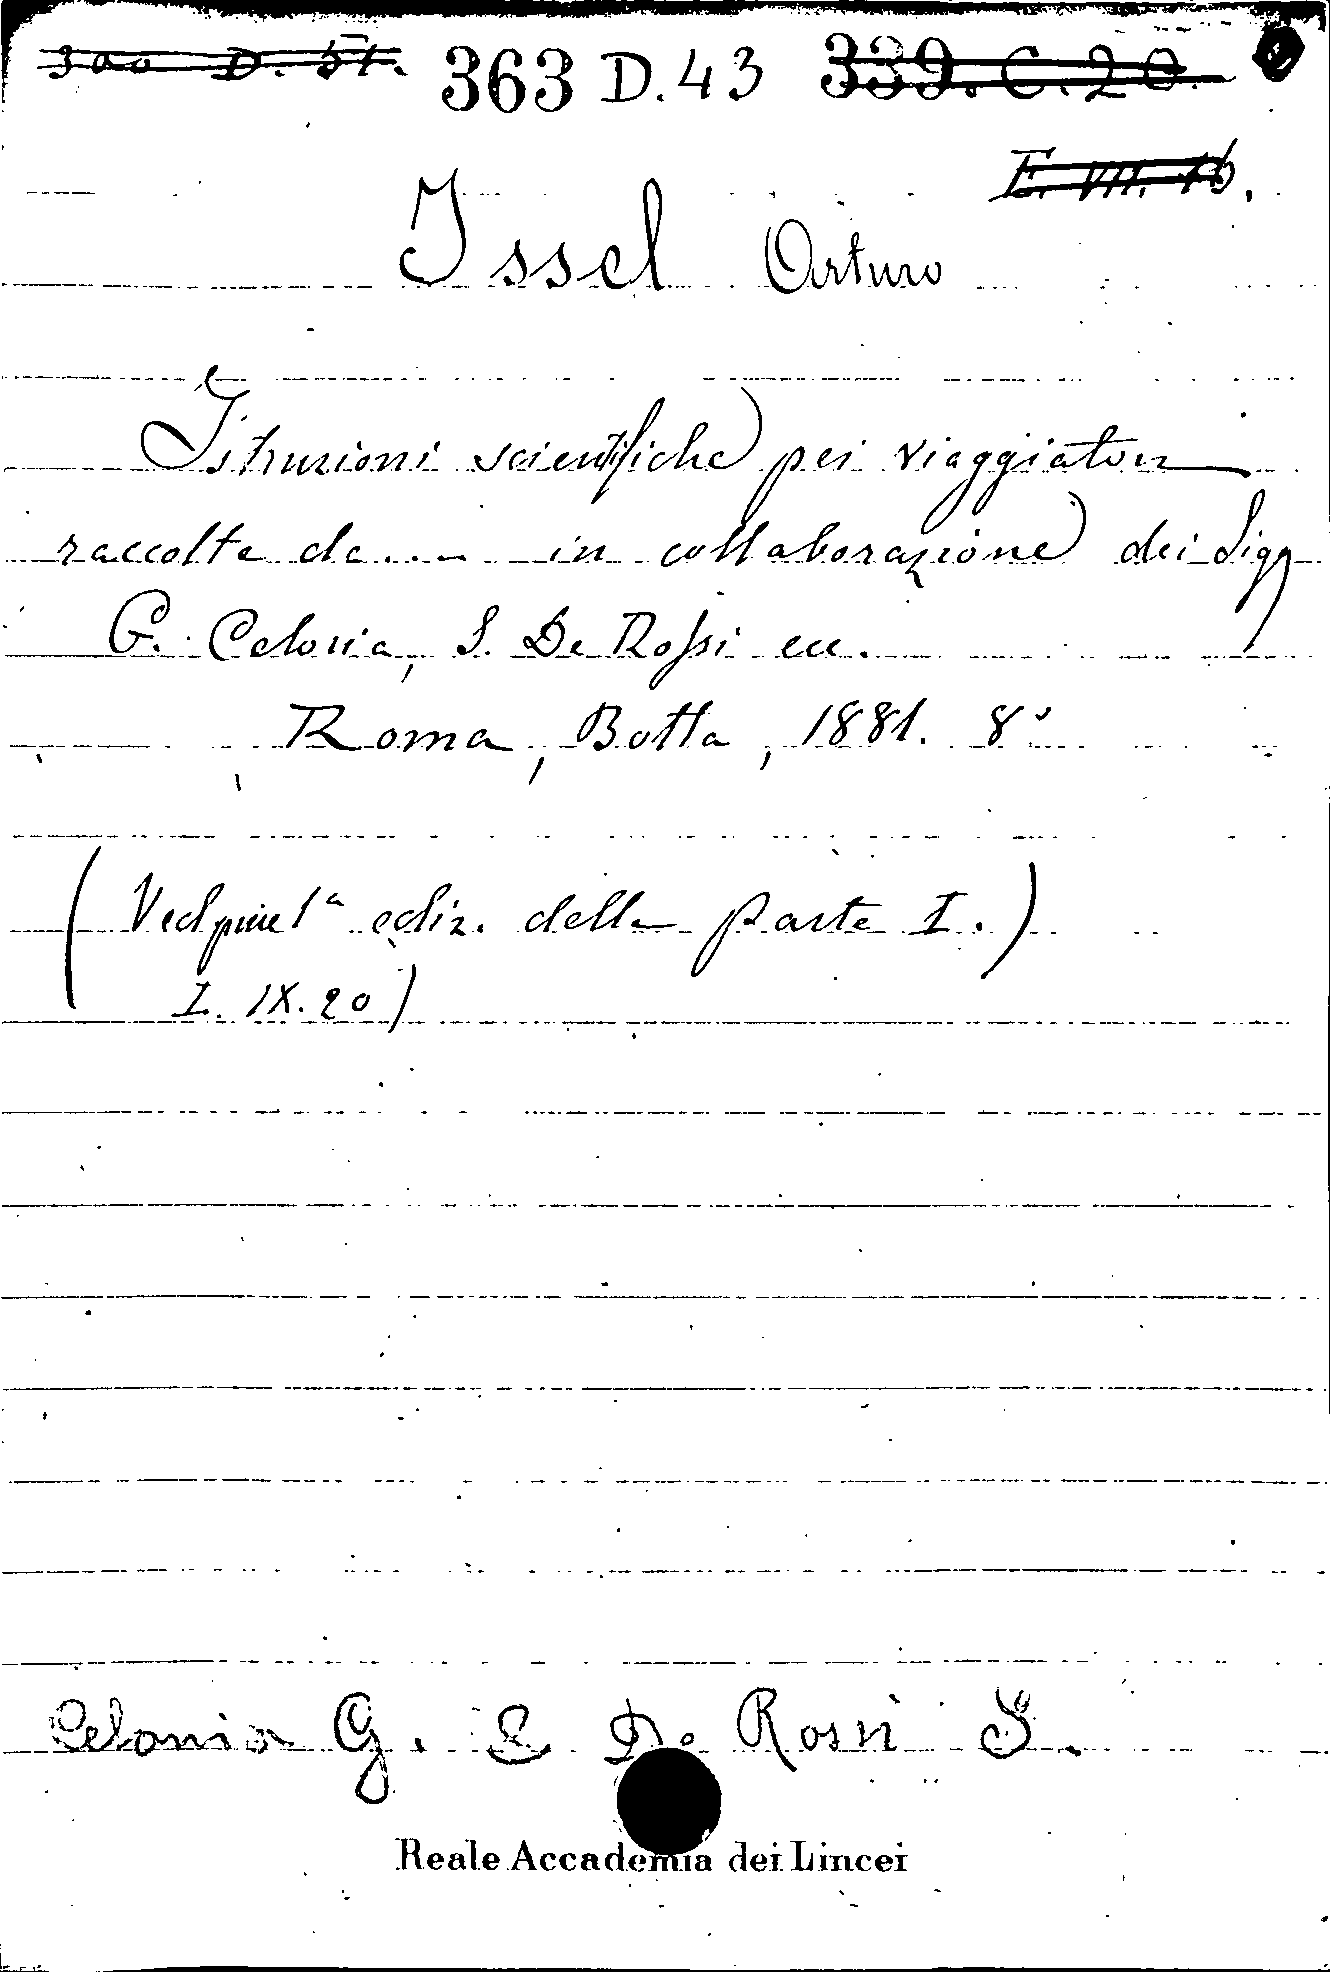 300 D. 51. 363 D.43 339. C.20.
E. VII. 16.
Issel Arturo
Istruzioni scientifiche pei viaggiatori
raccolte da.... in collaborazione dei Sigg
G. Celoria, S. De Rossi ecc.
Roma, Botta, 1881. 8°
(Ved pure 1ª ediz. della parte I.)
I. IX. 20)
Celoria G. e De Rossi S.
Reale Accademia dei Lincei